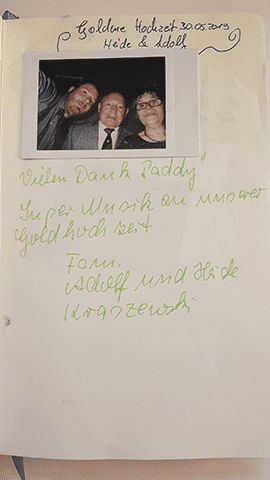 Goldene Hochzeit 30.05.2019
Heide & Adolf
Vielen Dank Paddy"
Super Musik an unserer
Goldhochzeit
Fam.
Adolf und Heide
Kraszewski